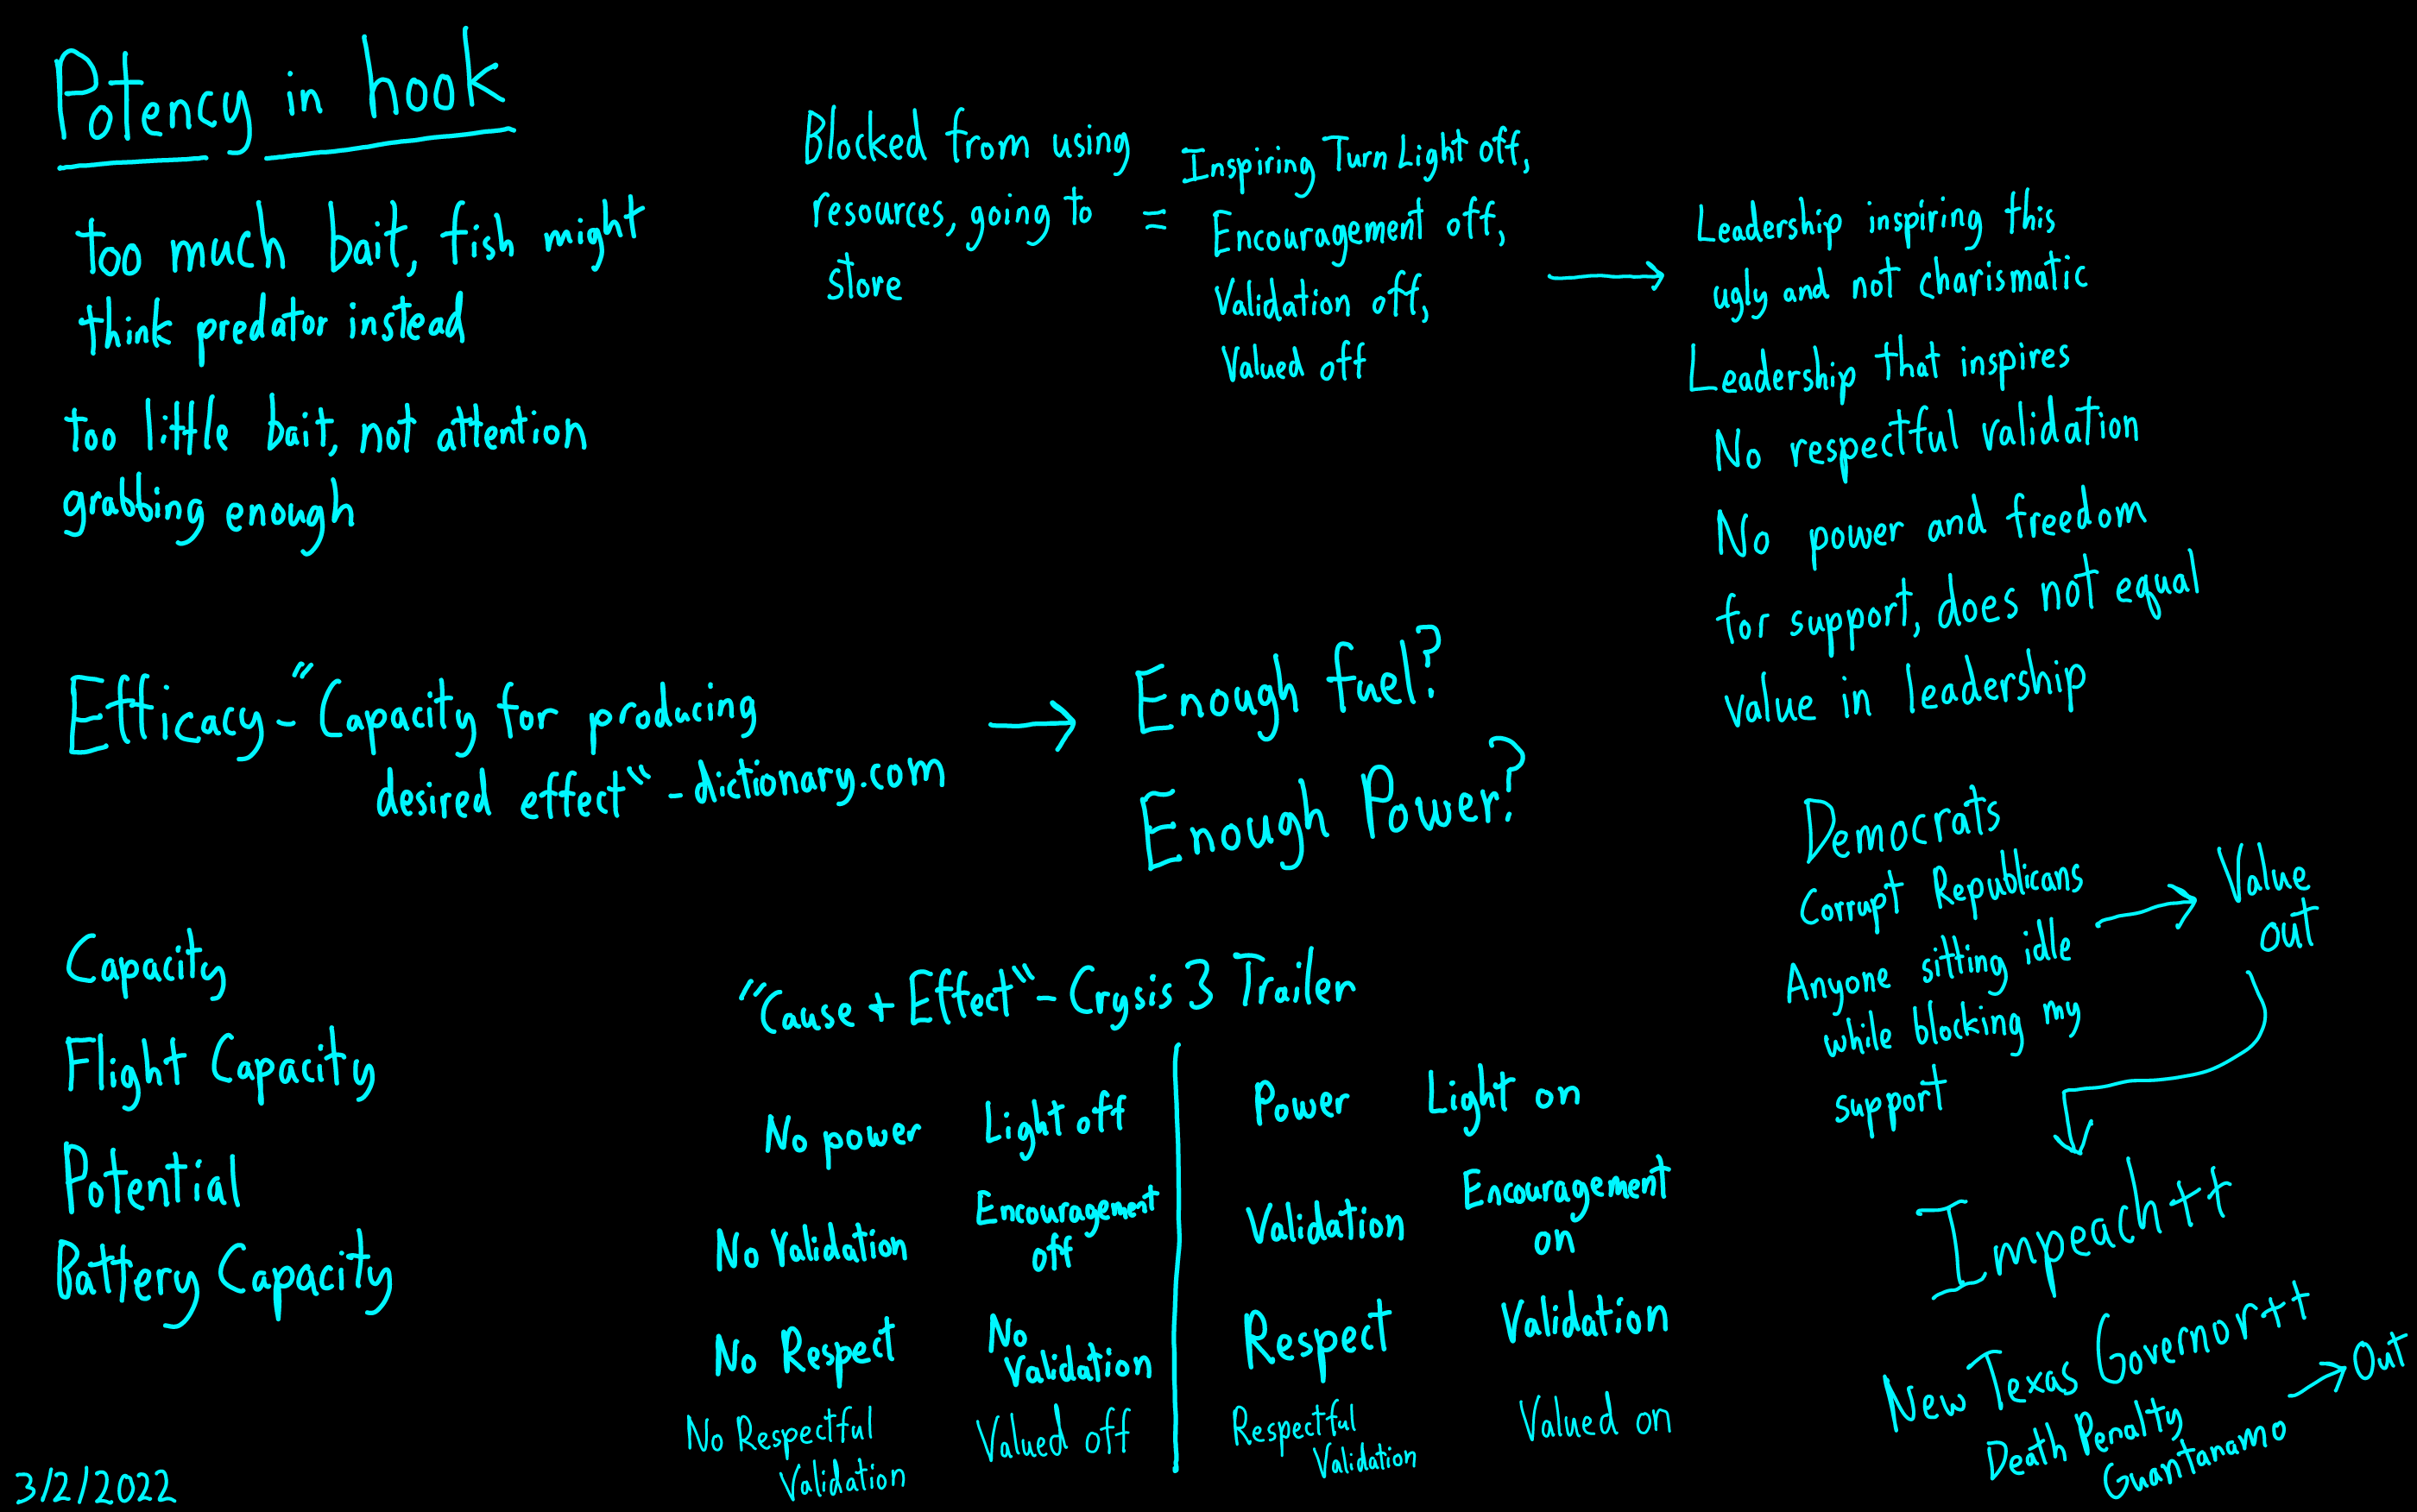 Potency in hook
too much bait, fish might
think predator instead
too little bait, not attention
grabbing enough
Blocked from using
resources, going to
store
=
Inspiring Turn Light off,
Encouragement off,
Validation off,
Valued off
Leadership inspiring this
ugly and not charismatic
Leadership that inspires
No respectful validation
No power and freedom
for support, does not equal
value in leadership
Efficacy - "Capacity for producing
desired effect" - dictionary.com
Enough fuel?
Enough Power?
Democrats
Corrupt Republicans
Anyone sitting idle
while blocking my
support
Value
out
Impeach++
New Texas Governor++
Death Penalty
Guantanamo
Out
Capacity
Flight Capacity
Potential
Battery Capacity
"Cause + Effect" - Crysis 3 Trailer
No power Light off
No Validation Encouragement
off
No Respect No
Validation
No Respectful
Validation Valued off
Power Light on
Validation Encouragement
on
Respect Validation
Respectful
Validation Valued on
3/2/2022